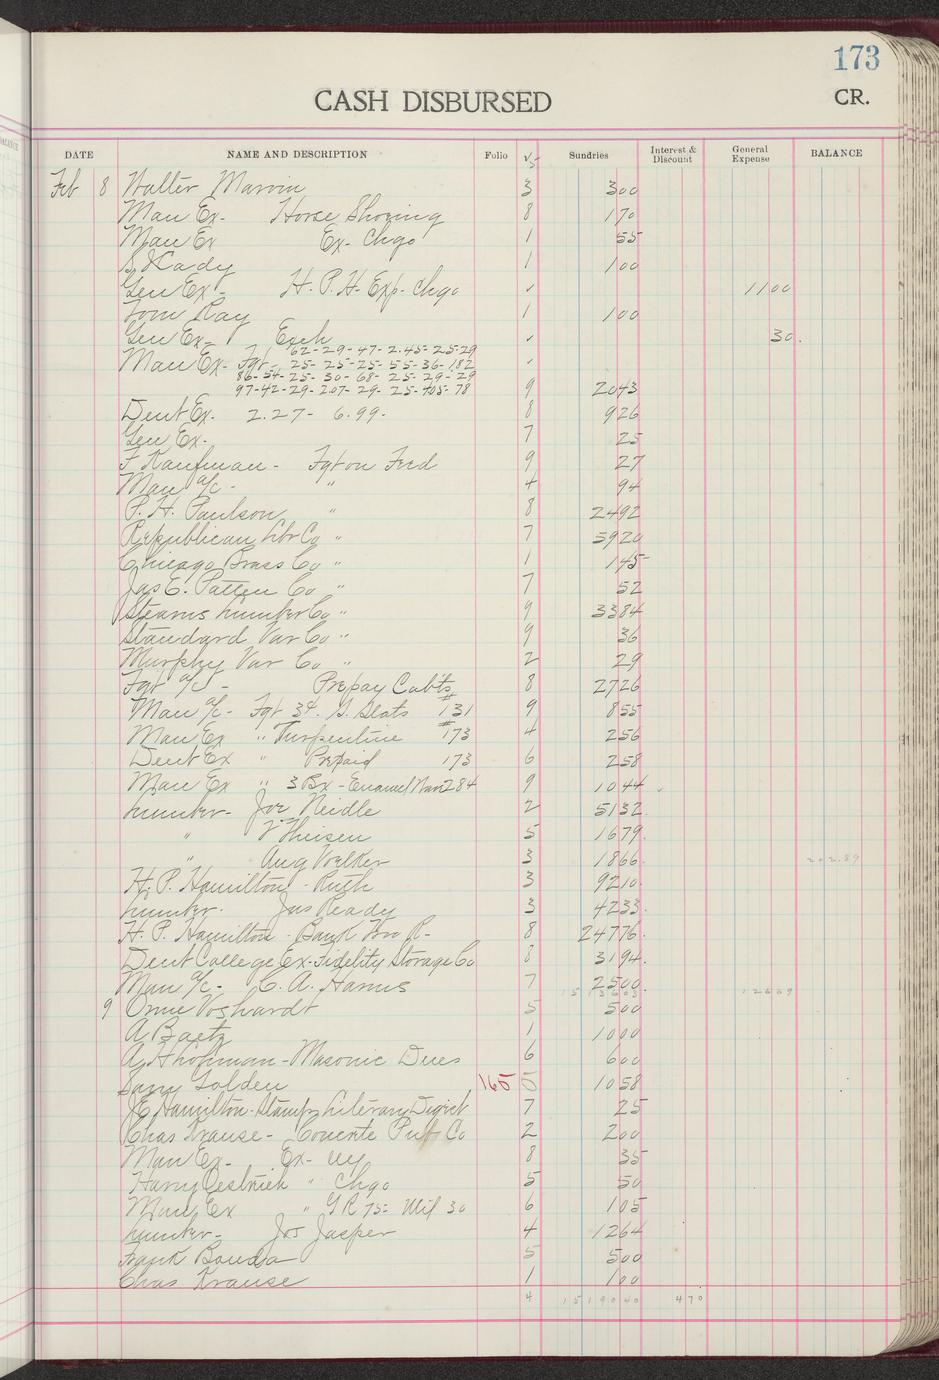 173
CASH DISBURSED
CR.
DATE NAME AND DESCRIPTION Folio √ Sundries Interest & Discount General Expense BALANCE
Feb 8 Walter Marvin 3 300
Man Ex- Horse Shoeing 8 170
Man Ex Ex- Chgo 1 55
S. Kady 1 100
Gen Ex- H. P. H- Exp- Chgo ✓ 1100
Tom Ray 1 100
Gen Ex- Exch ✓ 30
Man Ex- Fgt- 62-29-47-2.45-25-29 ✓
25-25-25-55-36-1.82
86-54-25-30-68-25-29-29
97-42-29-2.07-29-25-105-78 9 2043
Dent Ex. 2.27- 6.99- 8 926
Gen Ex- 7 25
F Kaufman- Fgt on Frd 9 27
Man a/c- " 4 94
P. H. Paulson " 8 2492
Republican Lbr Co " 7 5920
Chicago Brass Co " 1 145
Jas E. Patten Co " 7 52
Stearns Lumber Co " 9 3384
Standard Var Co " 9 36
Murphy Var Co " 2 29
Fgt a/c - Prepay Cab'ts 8 2726
Man a/c- Fgt 34. G. Slats #131 9 855
Man Ex " Turpentine #173 4 256
Dent Ex " Prepaid 173 6 258
Man Ex " 3 Bx - Enamel 284 9 1044
Lumber- Joe Neidle 2 5132
" Theisen 5 1679
" Aug Voelker 3 1866 202.89
H. P. Hamilton - Ruth 3 9210
Lumber. Jas Ready 3 4233
H. P. Hamilton - Bank 8 24776
Dent College Ex- Fidelity Storage Co 8 3194
Man a/c- C. A. Harms 7 2500
9 Orrie Voshardt 5 500
A Baetz 1 1000
Hhofman - Masonic Dues 6 600
Golden 165 5 1058
J E Hamilton- Stamps Literary Digest 7 25
Chas Krause- Concrete Pub Co 2 200
Man Ex- Ex- 8 35
Harry Oestrich " Chgo 5 50
Man Ex " G R 75= Mil 30 6 105
Lumber- Jos Jasper 4 1264
Frank Bouda 5 500
Chas Krause 1 100
4 1519040 470